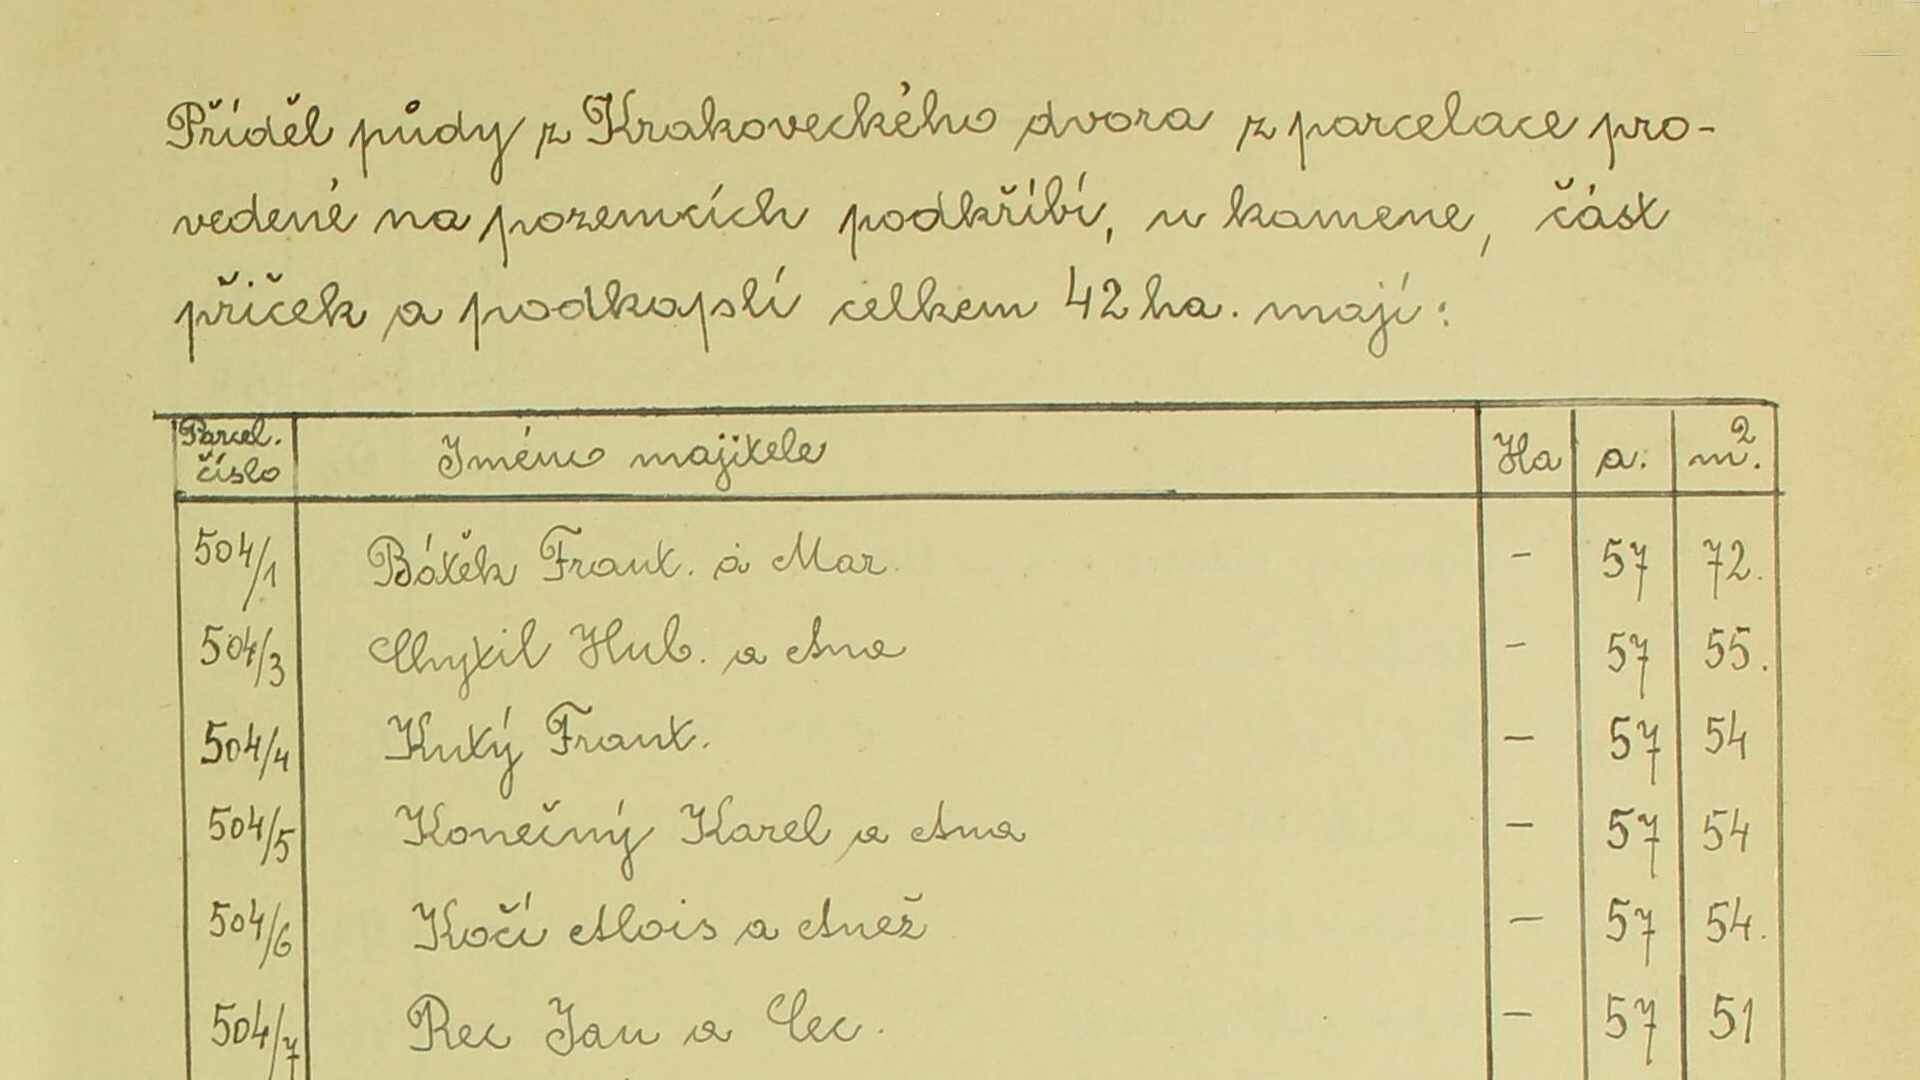 Příděl půdy z Krakoveckého dvora z parcelace pro-
vedené na pozemcích podkříbí, u kamene, část
příček a podkapslí celkem 42 ha. mají:
Parcel. číslo Jméno majitele Ha a. m².
504/1 Bátěk Frant. a Mar. - 57 72.
504/3 Chytil Hub. a Ana - 57 55.
504/4 Kutý Frant. - 57 54
504/5 Konečný Karel a Ana - 57 54
504/6 Kočí Alois a Anež - 57 54.
504/7 Rec Jan a Cec. - 57 51